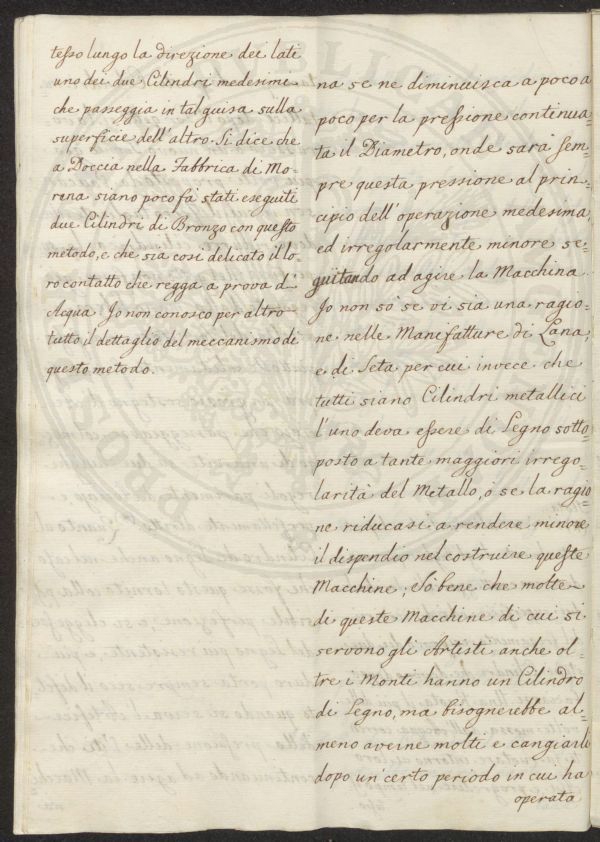 tesso lungo la direzione dei lati
uno dei due Cilindri medesimi
che passeggia in tal guisa sulla
superficie dell'altro. Si dice che
a Doccia nella Fabbrica di Mo-
rena siano poco fà stati eseguiti
due Cilindri di Bronzo con questo
metodo, e che sia così delicato il lo-
ro contatto che regga a prova d'
Acqua. Jo non conosco per altro
tutto il dettaglio del meccanismo di
questo metodo.
na se ne diminuisca a poco a
poco per la pressione continua-
ta il Diametro, onde sarà sem-
pre questa pressione al prin-
cipio dell'operazione medesima,
ed irregolarmente minore se-
guitando ad agire la Macchina.
Jo non sò se vi sia una ragio-
ne nelle Manifatture di Lana,
e di Seta per cui invece che
tutti siano Cilindri metallici
l'uno deva essere di Legno sotto-
posto a tante maggiori irrego-
larità del Metallo, ò se la ragio
ne riducasi a rendere minore
il dispendio nel costruire queste
Macchine; Sò bene che molte
di queste Macchine di cui si
servono gli Artisti anche ol-
tre i Monti hanno un Cilindro
di Legno, ma bisognerebbe al-
meno averne molti e cangiarli
dopo un certo periodo in cui ha
operato